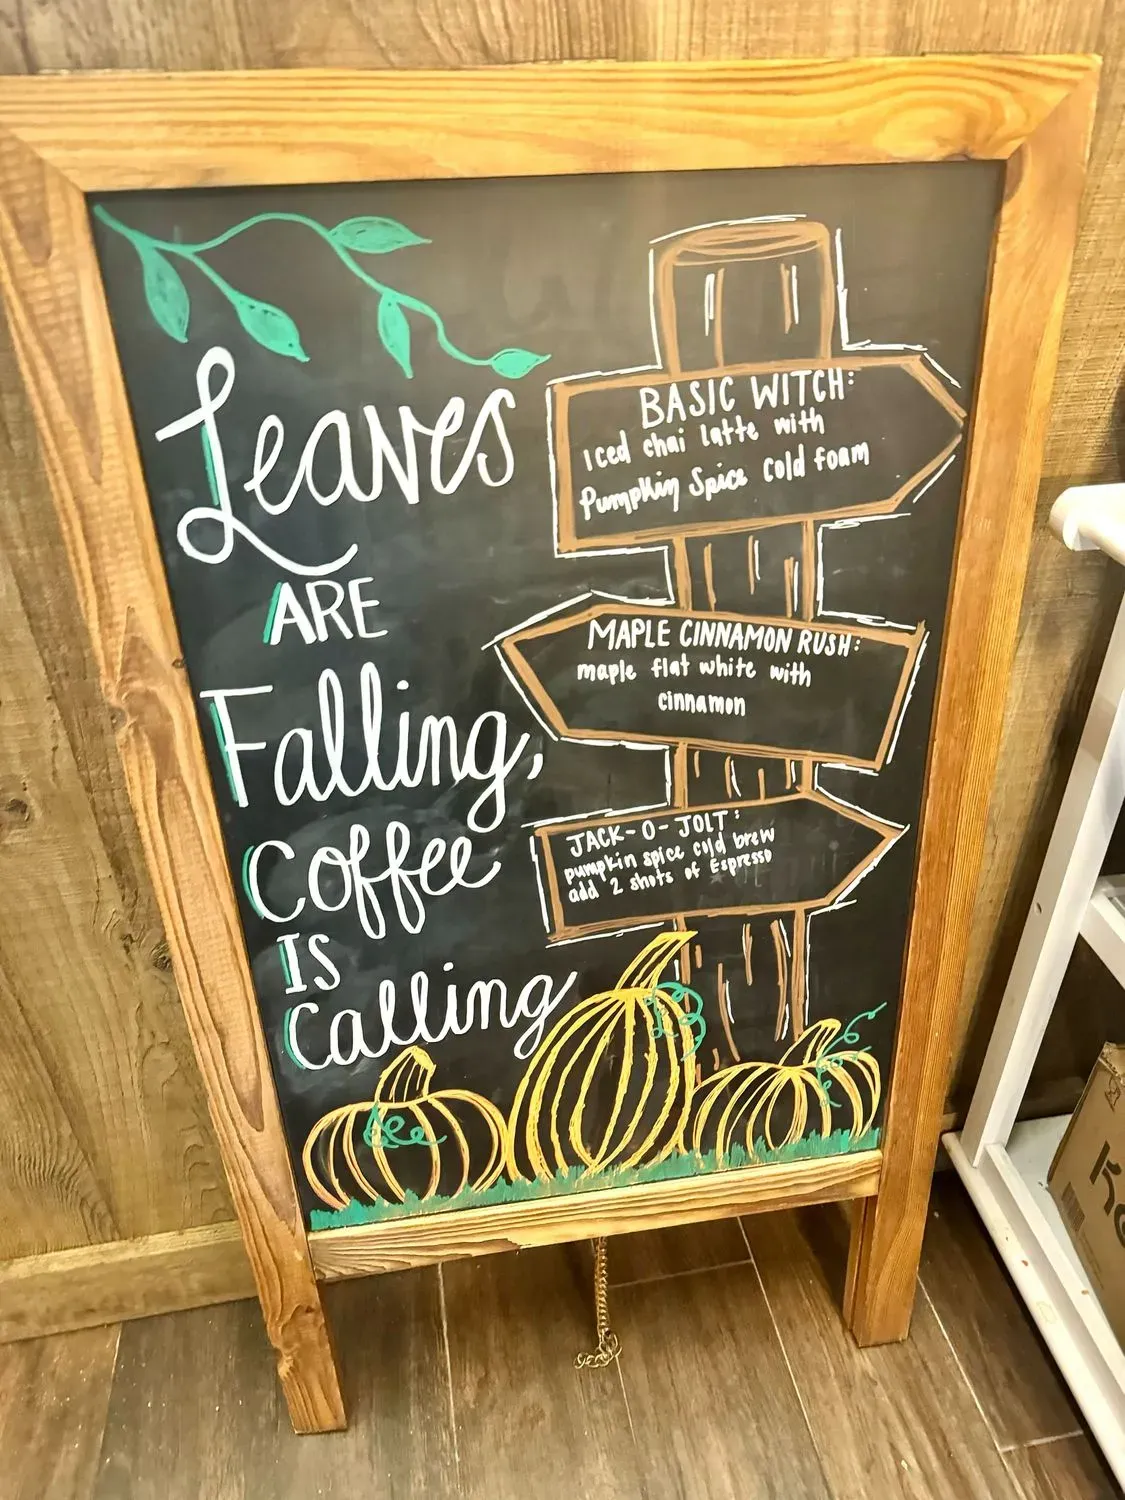 Leaves
ARE
Falling,
Coffee
IS
Calling
BASIC WITCH:
Iced chai latte with
Pumpkin Spice Cold Foam
MAPLE CINNAMON RUSH:
maple flat white with
cinnamon
JACK-O-JOLT:
pumpkin spice cold brew
add 2 shots of Espresso